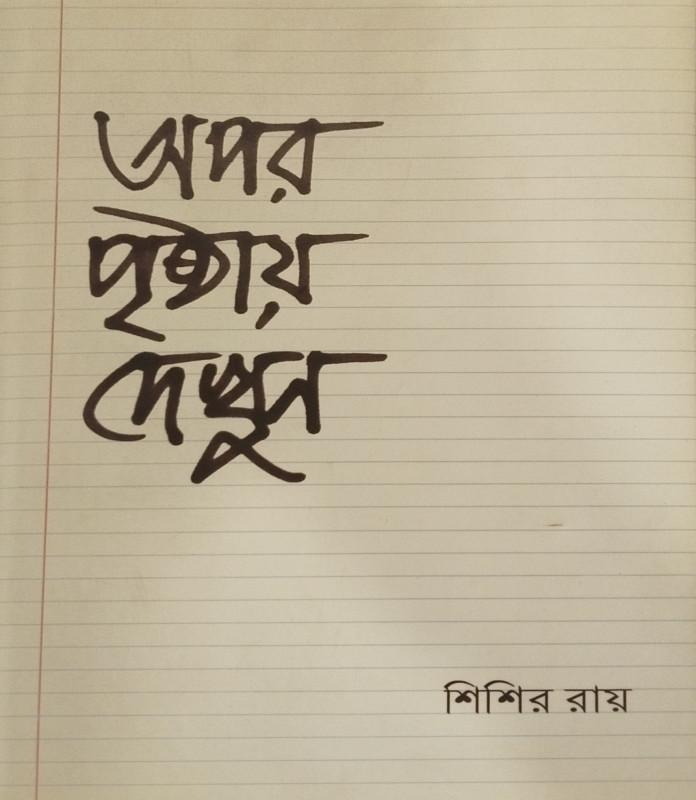 অপর
পৃষ্ঠায়
দেখুন
শিশির রায়